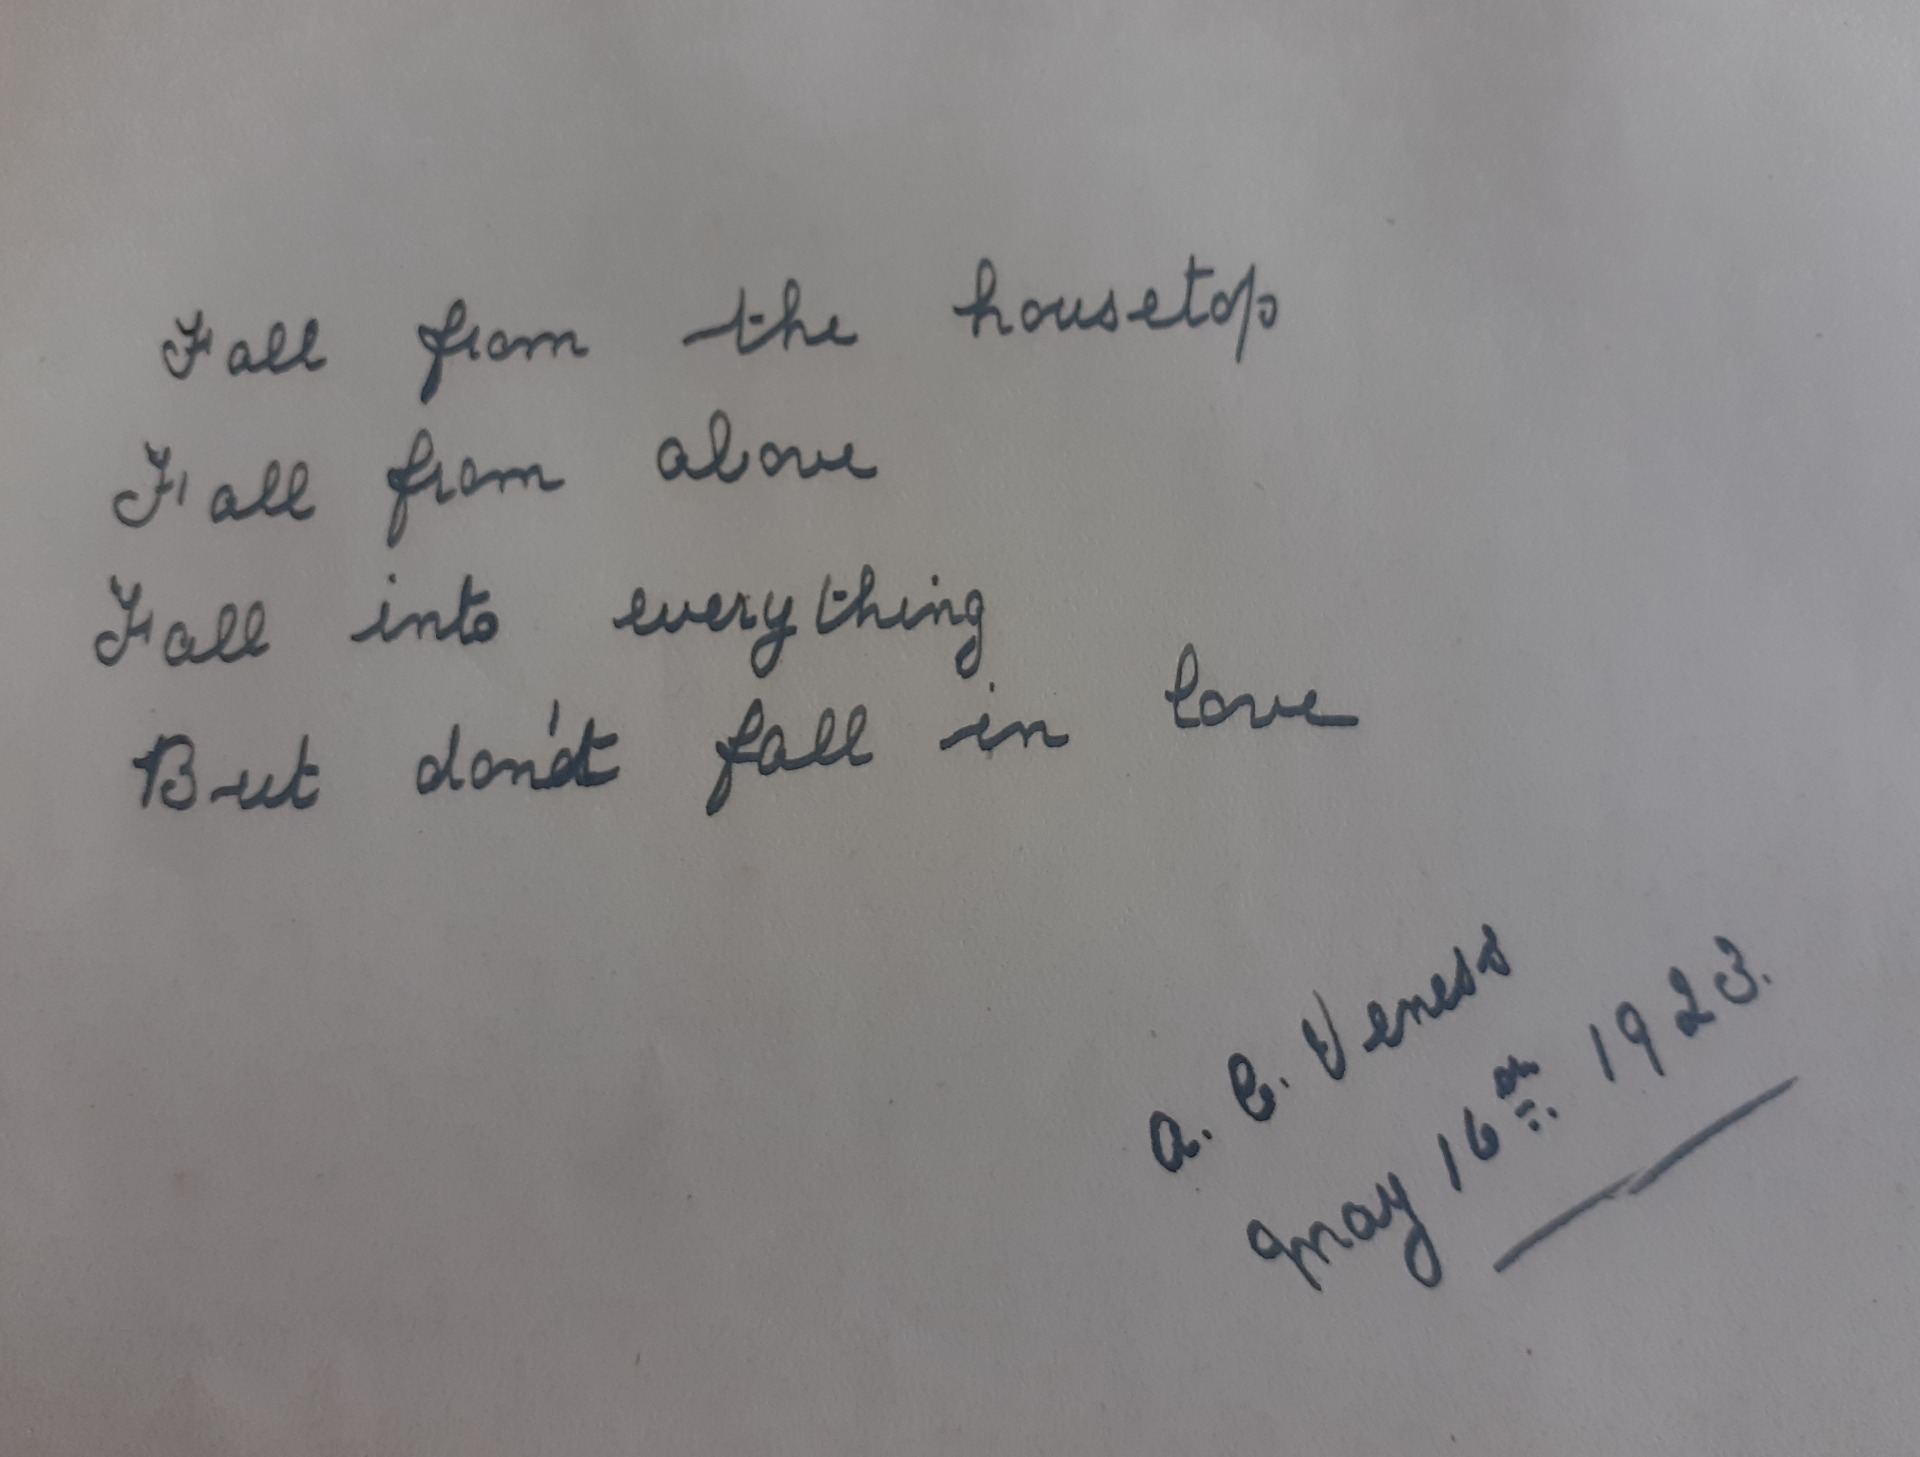 Fall from the housetop
Fall from above
Fall into everything
But don't fall in love
A. C. Veness
May 16th 1923.